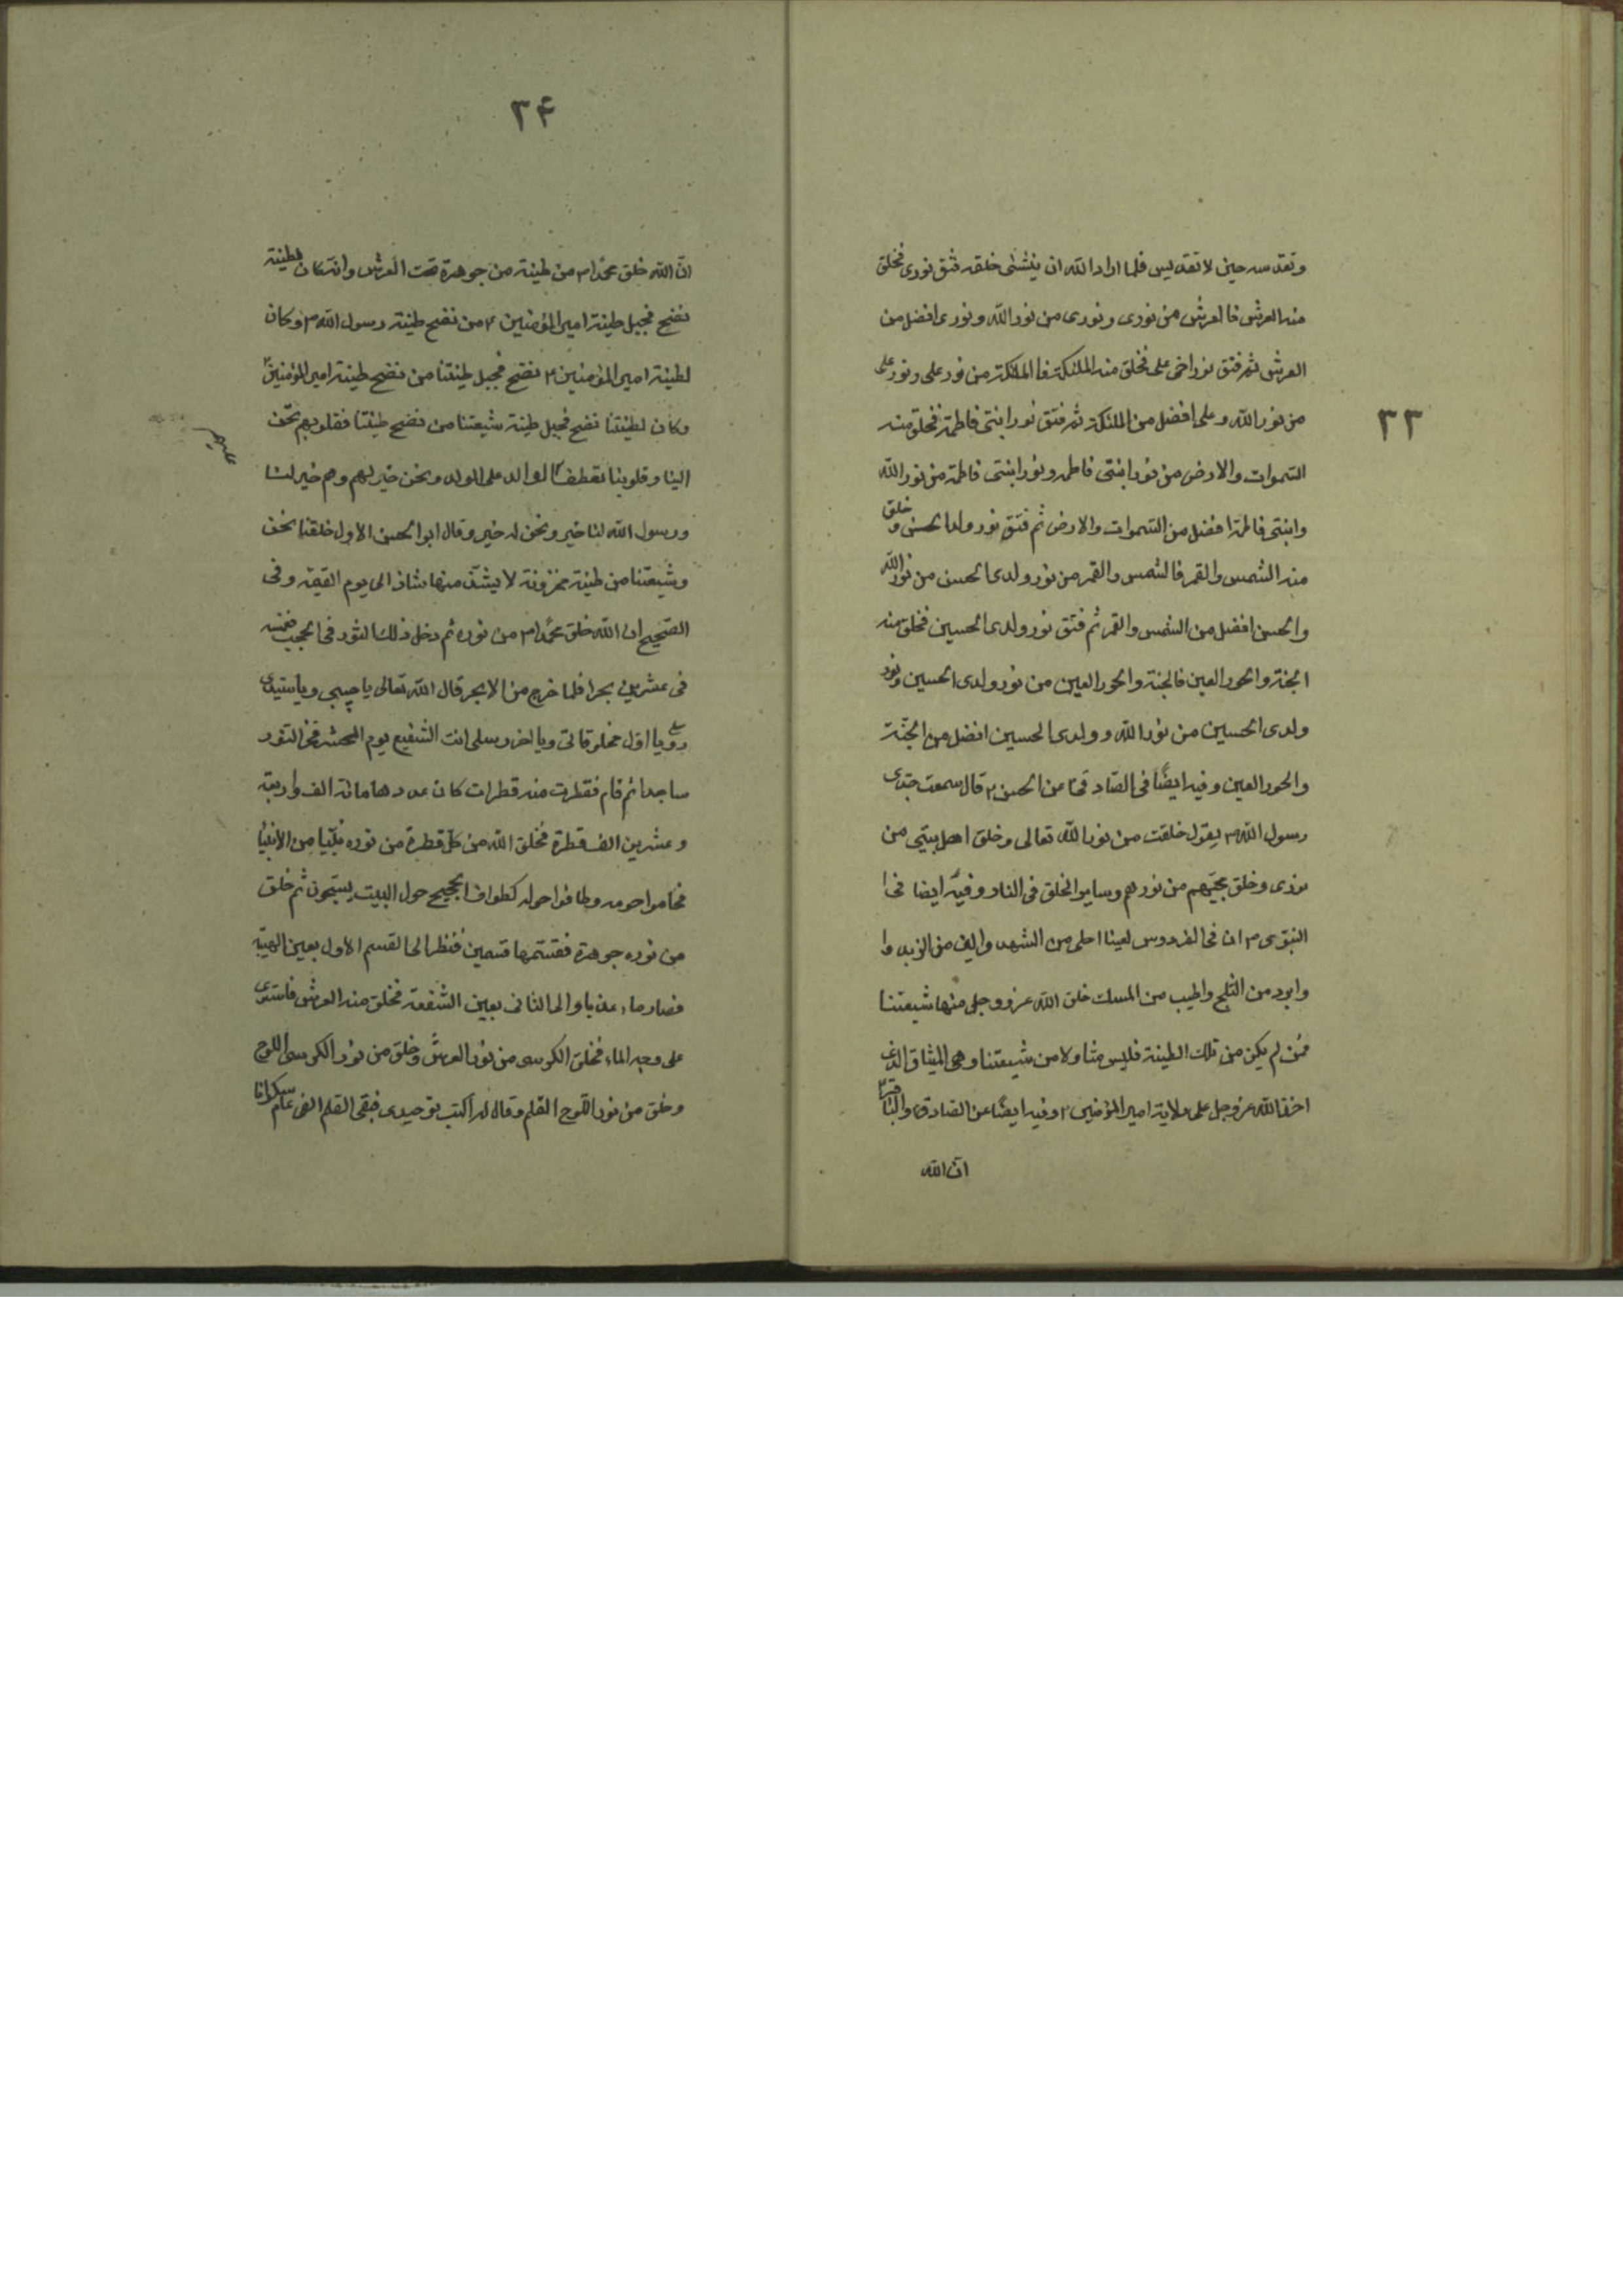 ٣٣
وتقدسه حين لا تقديس فلما اراد الله ان ينشئ خلقه فتق نورى فخلق
منه العرش فالعرش من نورى و نورى من نور الله و نورى افضل من
العرش ثم فتق نور اخى على فخلق منه الملئكة فالملئكة من نور على و نور على
من نور الله و على افضل من الملئكة ثم فتق نور ابنتى فاطمة فخلق منه
السموات والارض من نور ابنتى فاطمه و نور ابنتى فاطمة من نور الله
وابنتى فاطمة افضل من السموات والارض ثم فتق نور ولدى الحسن و خلق
منه الشمس والقمر فالشمس والقمر من نور ولدى الحسن من نور الله
والحسن افضل من الشمس والقمر ثم فتق نور ولدى الحسين فخلق منه
الجنة والحور العين فالجنة والحور العين من نور ولدى الحسين و نور
ولدى الحسين من نور الله و ولدى الحسين افضل من الجنة
والحور العين و فيه ايضا فى الصادقى عن الحسن ع قال سمعت جدى
رسول الله ص يقول خلقت من نور الله تعالى و خلق اهل بيتى من
نورى و خلق محبيهم من نورهم و ساير الخلق فى النار و فيه ايضا فى ا
النبوى ص ان فى الفردوس لعينا احلى من الشهد و الين من الزبد و ا
وابرد من الثلج واطيب من المسك خلق الله عز و وجل منها شيعتنا
فمن لم يكن من تلك الطينة فليس منا ولا من شيعتنا و هى الميثاق الذى
اخذ الله عز وجل على ولاية امير المؤمنين ع و فيه ايضا عن الصادق والباقر ع
ان الله
٣۴
ان الله خلق محمدا ص من طينة من جوهرة تحت العرش وانه كان لطينته
نضح فجبل طينة امير المؤمنين ع من نضح طينة رسول الله ص و كان
لطينة امير المؤمنين ع نضح فجبل طينتنا من نضح طينة امير المؤمنين ع
وكان لطينتنا نضح فجبل طينة شيعتنا من نضح طينتنا فقلوبهم تحن
الينا و قلوبنا تعطف الوالد على الولد و نحن خير لهم و هم خير لنا
ورسول الله لنا خير و نحن له خير و قال ابو الحسن الاول خلقنا نحن
وشيعتنا من طينة مخزونة لا يشذ منها شاذ الى يوم القيمة و فى
الصحيح ان الله خلق محمدا ص من نوره ثم دخل ذلك النور فى الحجب فغمسه
فى عشرين بحرا فلما خرج من الابحر قال الله تعالى يا حبيبى و يا سيد
رسلى و يا اول مخلوقاتى و يا اخر رسلى انت الشفيع يوم المحشر فخر النور
ساجدا ثم قام فقطرت منه قطرات كان عددها مائة الف و اربعة
و عشرين الف قطرة فخلق الله من كل قطرة من نوره نبيا من الانبيا
فحاموا حومه و طافوا حوله كطواف الحجيج حول البيت يسبحون ثم خلق
من نوره جوهرة فقسمها قسمين فنظر الى القسم الاول بعين الهيبة
فصار ماء عذبا و الى الثانى بعين الشفقة فخلق منه العرش فاستوى
على وجه الماء فخلق الكرسى من نور العرش و خلق من نور الكرسى اللوح
و خلق من نور اللوح القلم و قال له اكتب توحيدى فبقى القلم الف عام سكرانا